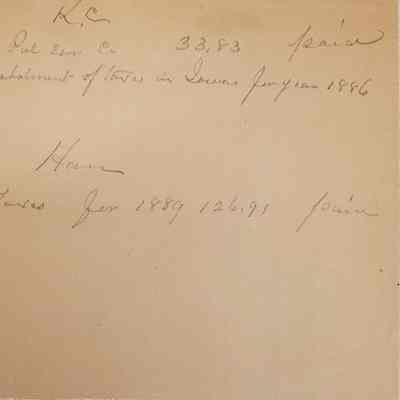 K.C
Pul Co 33,83 paid
abatement of taxes in Iowa for year 1886
Ham
Taxes for 1889 126.91 paid